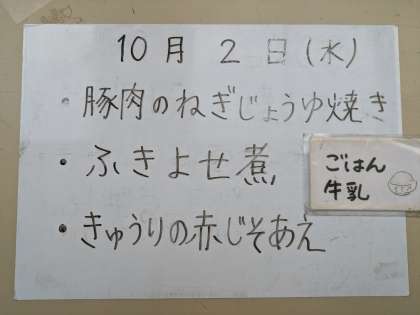 10月 2日(水)
・豚肉のねぎじょうゆ焼き
・ふきよせ煮
ごはん
牛乳
・きゅうりの赤じそあえ